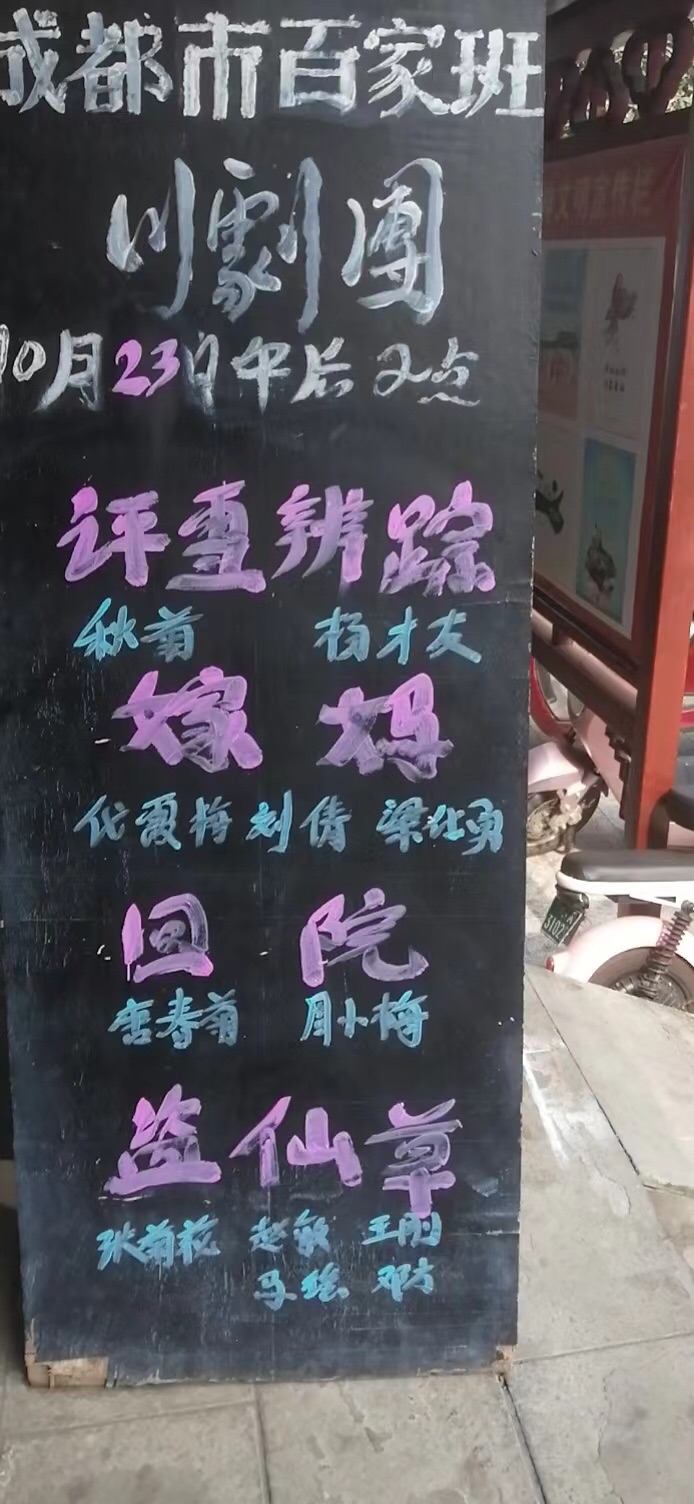 成都市百家班
川劇團
10月23日午后2点
评雪辨踪
秋菊 杨才友
嫁妈
代霞梅 刘倩 梁仕勇
回院
唐春菊 周小梅
盗仙草
张菊花 赵敏 王刚
马 邓方
文明宣传栏
3102